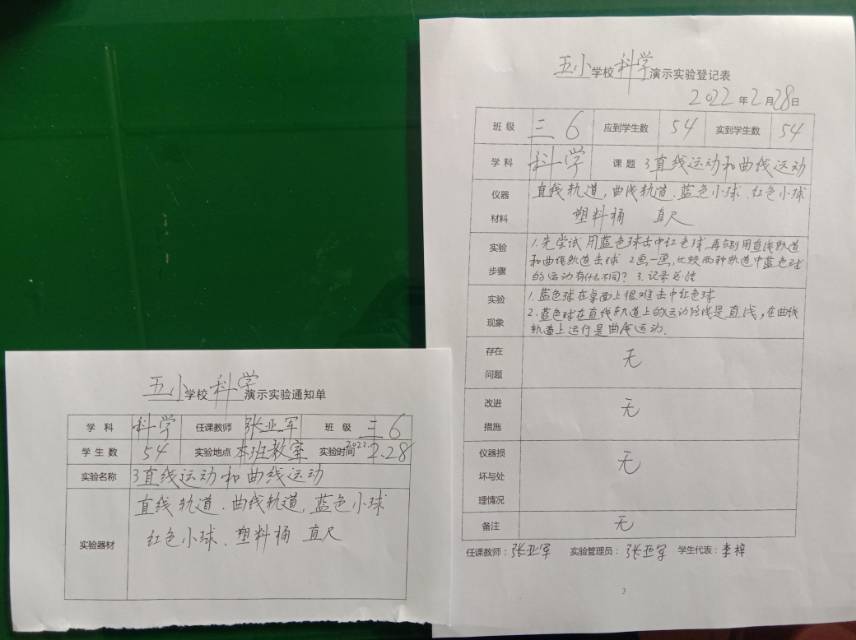 五小学校科学演示实验通知单
学科 科学 任课教师 张亚军 班级 三6
学生数 54 实验地点 本班教室 实验时间 2022.2.28
实验名称 3直线运动和曲线运动
实验器材 直线轨道、曲线轨道,蓝色小球
红色小球、塑料桶 直尺
五小学校科学演示实验登记表
2022年2月28日
班级 三6 应到学生数 54 实到学生数 54
学科 科学 课题 3直线运动和曲线运动
仪器材料 直线轨道,曲线轨道、蓝色小球、红色小球
塑料桶 直尺
实验步骤 1.先尝试用蓝色球击中红色球,再分别用直线轨道
和曲线轨道击球 2画一画,比较两种轨道中蓝色球
的运动有什么不同? 3.记录总结
实验现象 1.蓝色球在桌面上很难击中红色球
2.蓝色球在直线轨道上的运动路线是直线,在曲线
轨道上运行是曲线运动.
存在问题 无
改进措施 无
仪器损坏与处理情况 无
备注 无
任课教师:张亚军 实验管理员:张亚军 学生代表:李梓